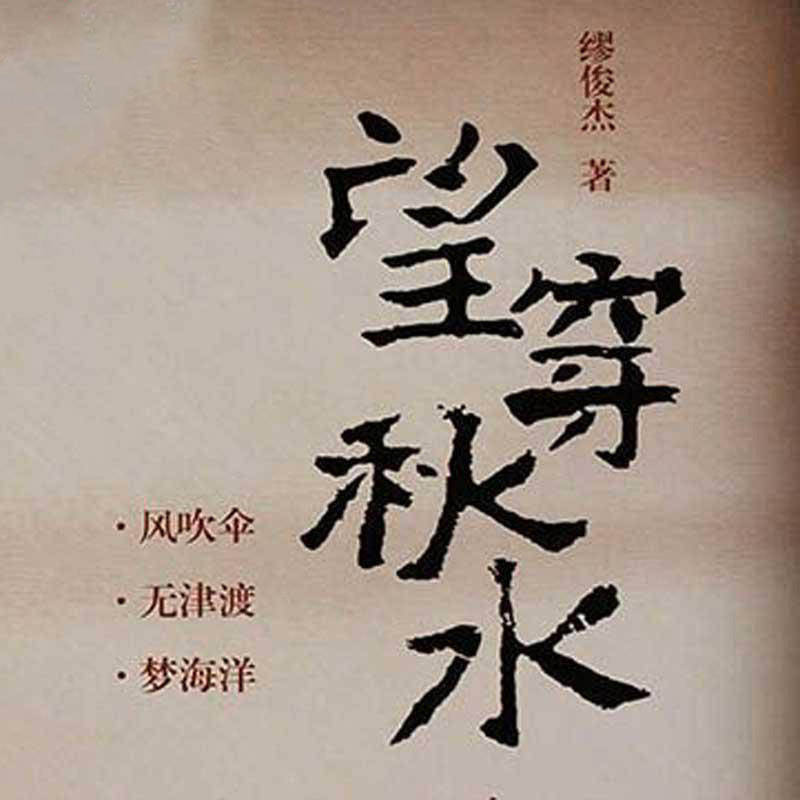 缪俊杰 著
望穿秋水
·风吹伞
·无津渡
·梦海洋